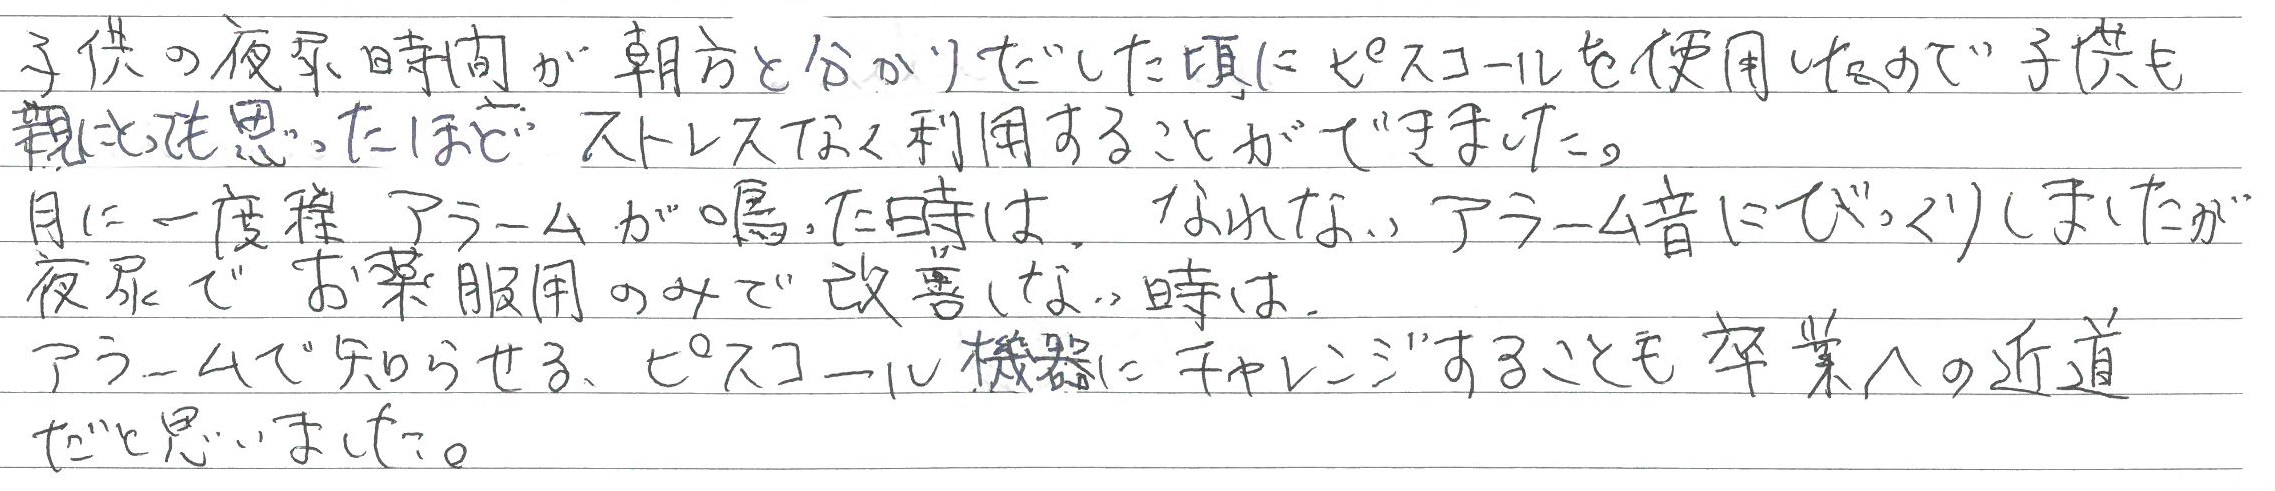 子供の夜尿時間が朝方と分かりだした頃にピスコールを使用したので子供も
親にとっても思ったほど ストレスなく利用することができました。
月に一度程 アラームが鳴った時は、なれない アラーム音にびっくりしましたが
夜尿で お薬服用のみで 改善しない時は、
アラームで知らせる、ピスコール機器に チャレンジすることも 卒業への近道
だと思いました。